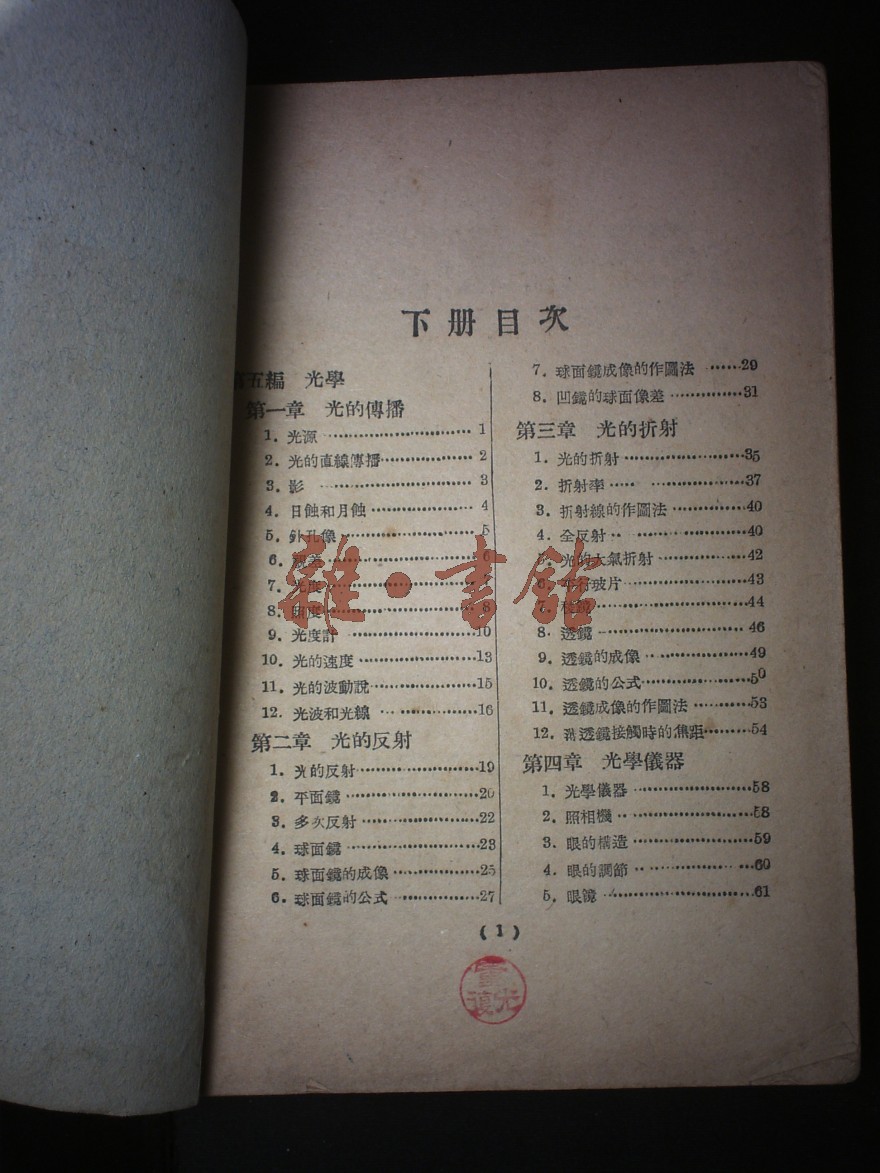 下册目次
第五編 光學
第一章 光的傳播
1. 光源 1
2. 光的直線傳播 2
3. 影 3
4. 日蝕和月蝕 4
5. 針孔像 5
6. 視差 6
7. 光度 7
8. 照度 8
9. 光度計 10
10. 光的速度 13
11. 光的波動說 15
12. 光波和光線 16
第二章 光的反射
1. 光的反射 19
2. 平面鏡 20
3. 多次反射 22
4. 球面鏡 23
5. 球面鏡的成像 25
6. 球面鏡的公式 27
7. 球面鏡成像的作圖法 29
8. 凹鏡的球面像差 31
第三章 光的折射
1. 光的折射 35
2. 折射率 37
3. 折射線的作圖法 40
4. 全反射 40
5. 光的大氣折射 42
6. 平行玻片 43
7. 稜鏡 44
8. 透鏡 46
9. 透鏡的成像 49
10. 透鏡的公式 50
11. 透鏡成像的作圖法 53
12. 透鏡接觸時的焦距 54
第四章 光學儀器
1. 光學儀器 58
2. 照相機 58
3. 眼的構造 59
4. 眼的調節 60
5. 眼鏡 61
(1)
雜·書館